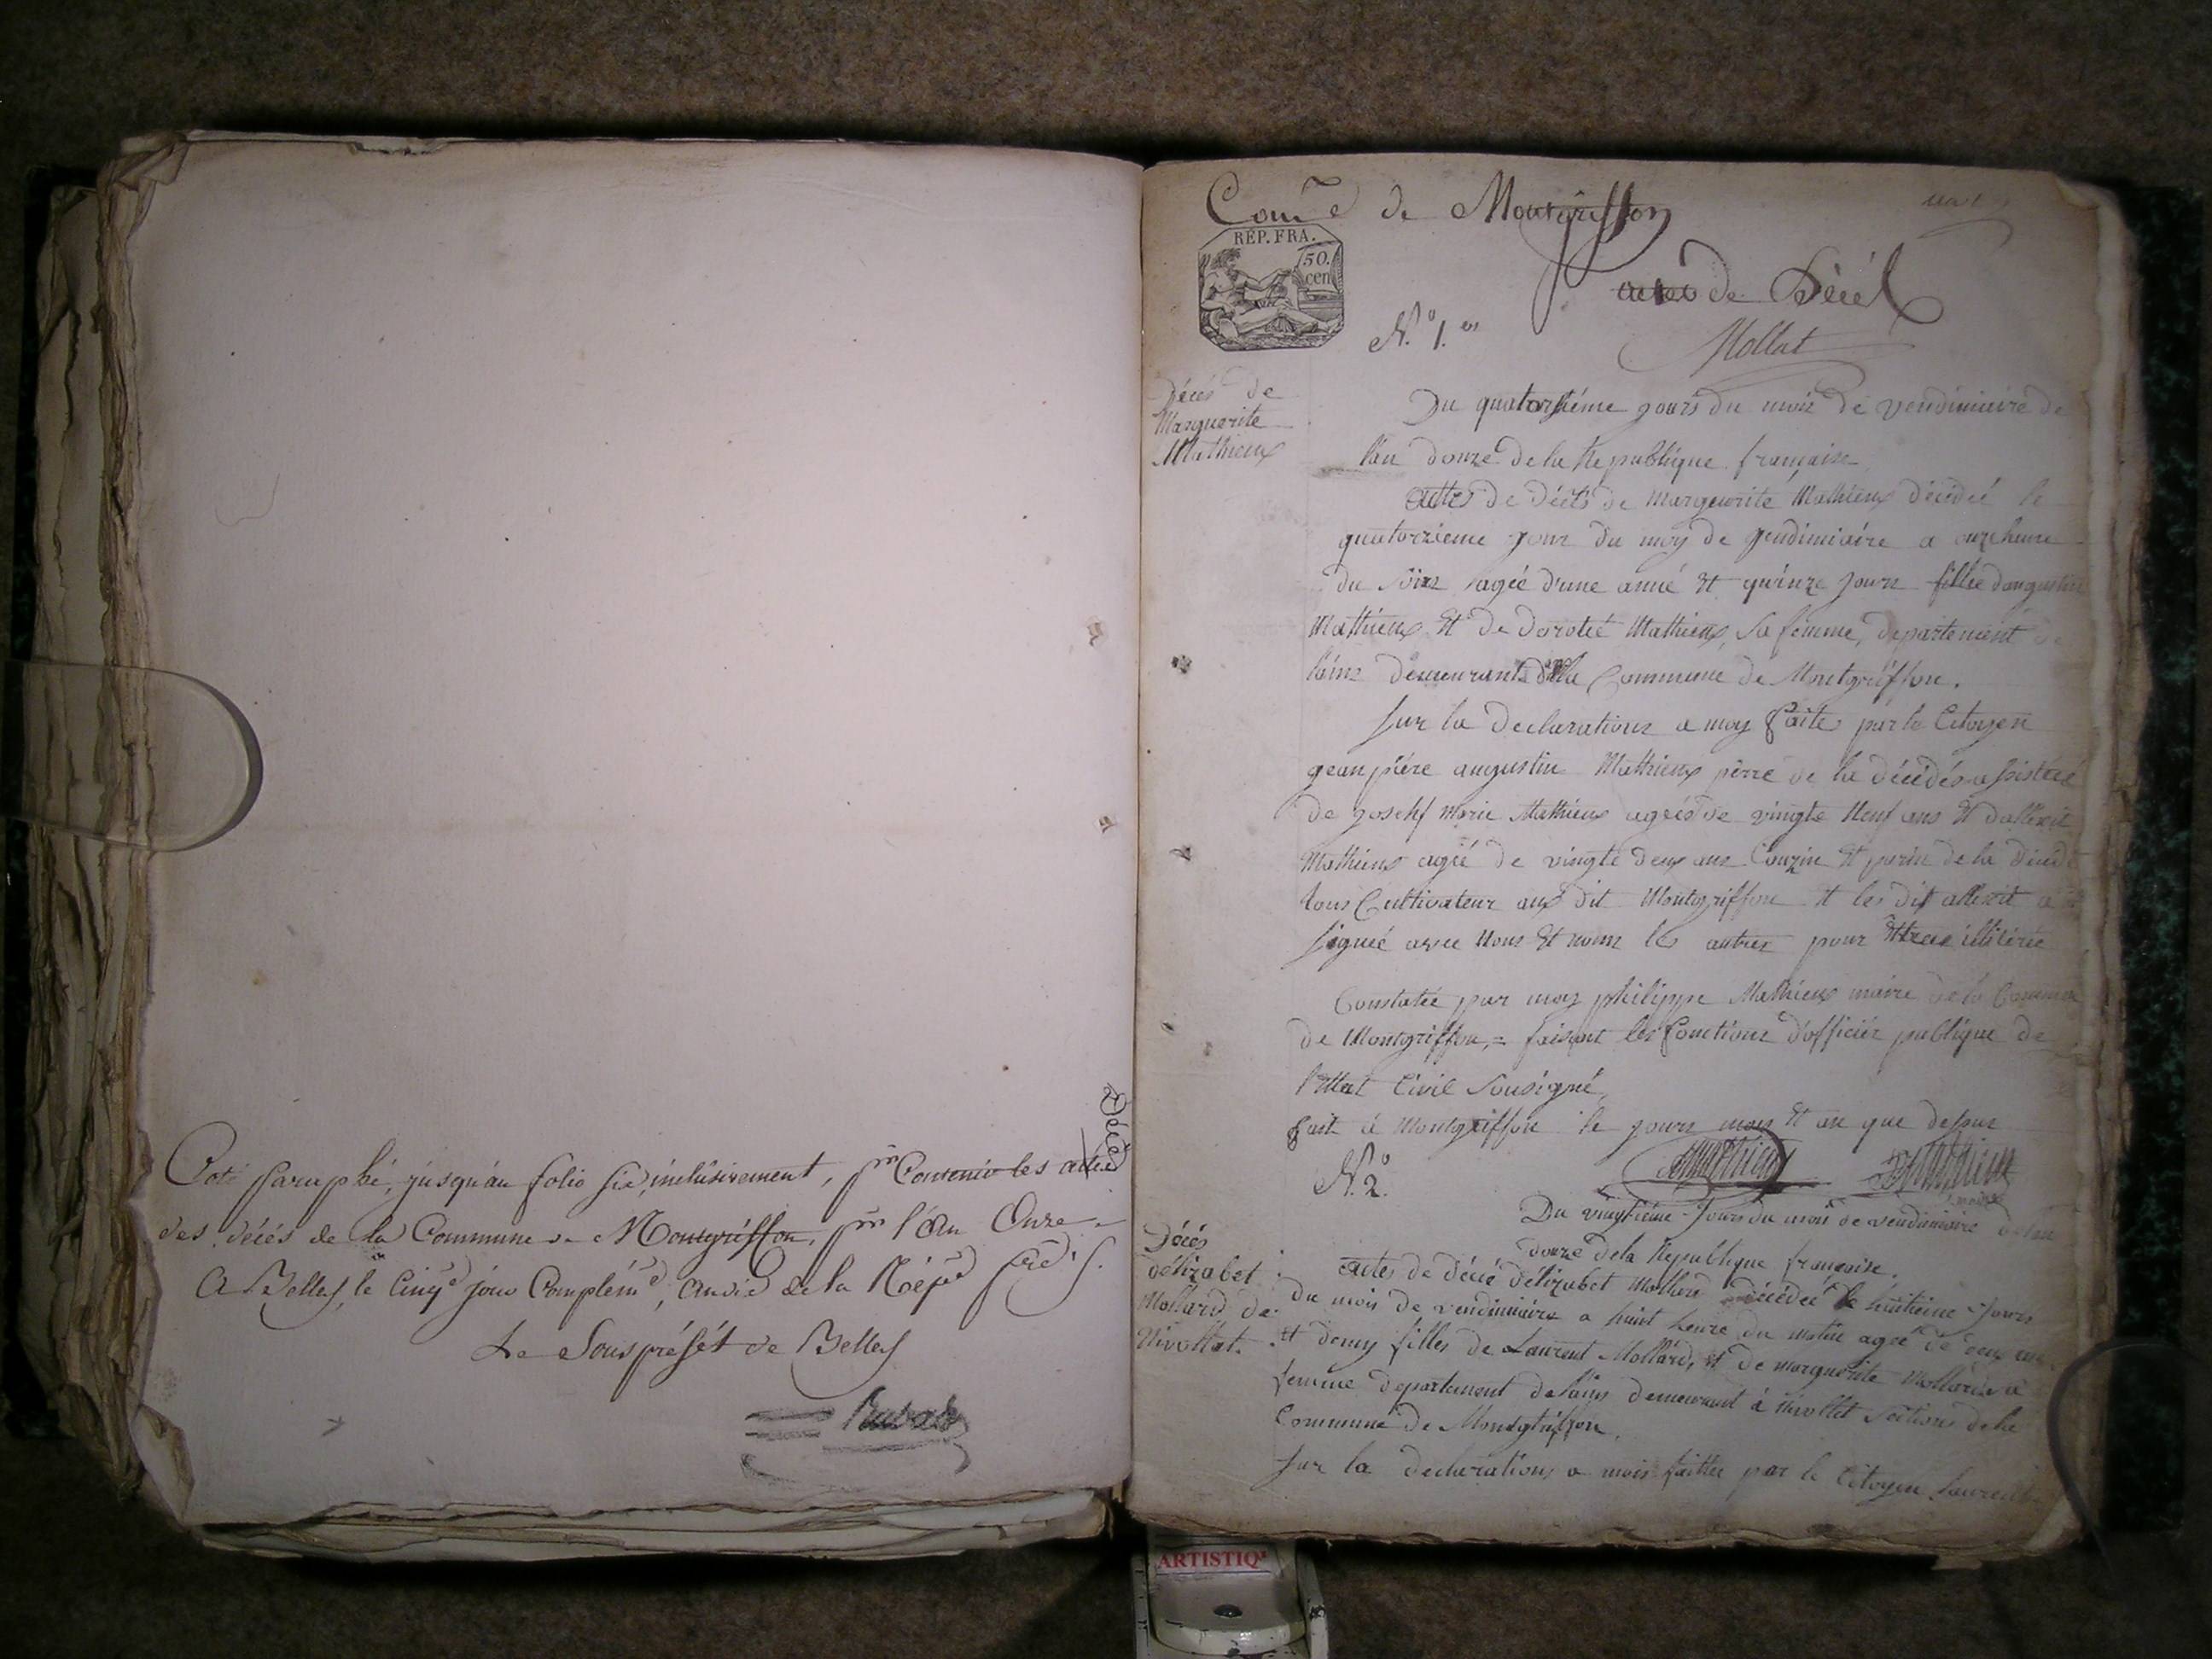 Coté paraphé, jusqu'au folio six, inclusivement, pr Contenir les actes
Décès
des décés de la Commune de Montgriffon, pr l'an Onze
A Belley, le Cinqe jour Complémre, an de la Répe
Le Souspréfét de Belley
Come de Montgriffon
REP. FRA.
50.
cen
actes de Décés
N.o 1.er
Mollat
Décés de
Marguerite
Mathieux
Du quatorsiéme jours du mois de vendimiaire de
l'an douze de la Republique française
Actes de décés de Marguerite Mathieux décédéé le
quatorzieme jour du moy de vendimiaire a onze heure
du soir ageé d'une anné Et quinze jours fillie daugustin
Mathieux Et de dorotéé Mathieux, sa femme, departement de
lains demeurants dans la Commune de Montgriffon.
sur la declarations a moy faite par le Citoyen
gean piére augustin Mathieux perre de la décédés assisteé
de josehf Marie Mathieux ageés de vingte Neuf ans Et dallexit
Mathieux ageé de vingte deux ans Couzin Et parin de la
tous Cultivateur aux dit Montgriffon Et les dit allexit a
signeé avec Nous Et nom les autres pour Ettree illiteree
Constatée par moy philippe Mathieux maire de la Commune
de Montgriffon, = faisant les fonctions d'officiér publique de
l'Ettat Civil Sousigné
fait à Montgriffon le jours mois Et an que dessus
N.o 2.
Mathieux Mathieux
maire
Du vingtieme jours du mois de vendimiaire de lan
douze de la Republique française.
Décés
délizabet
Mollard de
Nivollat.
Actes de décé délizabet Mollard décédéé le huitieme jours
du mois de vendimiaire a huit heure du matin ageé de deux ans
Et demy filles de Laurent Mollard, et de marguerite Mollard sa
femme departement de lains demeurant à Nivollet Sections de la
Commune de Montgriffon.
sur la declarations a mois faittes par le Citoyen Laurent
ARTISTIQ